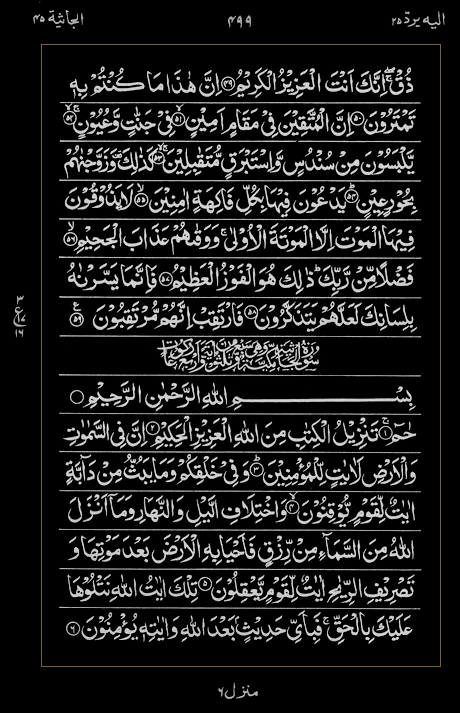 اليه يرد ٢٥ ٤٩٩ الجاثية ٤٥
ذُقْ ۚۙ اِنَّكَ اَنْتَ الْعَزِيْزُ الْكَرِيْمُ ﴿٤٩﴾ اِنَّ هٰذَا مَا كُنْتُمْ بِهٖ
تَمْتَرُوْنَ ﴿٥٠﴾ اِنَّ الْمُتَّقِيْنَ فِيْ مَقَامٍ اَمِيْنٍ ﴿٥١﴾ فِيْ جَنّٰتٍ وَّعُيُوْنٍ ﴿٥٢﴾
يَّلْبَسُوْنَ مِنْ سُنْدُسٍ وَّاِسْتَبْرَقٍ مُّتَقٰبِلِيْنَ ﴿٥٣﴾ كَذٰلِكَ ۫ وَزَوَّجْنٰهُمْ
بِحُوْرٍ عِيْنٍ ﴿٥٤﴾ يَدْعُوْنَ فِيْهَا بِكُلِّ فَاكِهَةٍ اٰمِنِيْنَ ﴿٥٥﴾ لَا يَذُوْقُوْنَ
فِيْهَا الْمَوْتَ اِلَّا الْمَوْتَةَ الْاُوْلٰى ۚ وَوَقٰىهُمْ عَذَابَ الْجَحِيْمِ ﴿٥٦﴾
فَضْلًا مِّنْ رَّبِّكَ ۭ ذٰلِكَ هُوَ الْفَوْزُ الْعَظِيْمُ ﴿٥٧﴾ فَاِنَّمَا يَسَّرْنٰهُ
بِلِسَانِكَ لَعَلَّهُمْ يَتَذَكَّرُوْنَ ﴿٥٨﴾ فَارْتَقِبْ اِنَّهُمْ مُّرْتَقِبُوْنَ ﴿٥٩﴾ ع
٣
ع ١٧
١٦
بِسْمِ اللهِ الرَّحْمٰنِ الرَّحِيْمِ
حٰمٓ ﴿١﴾ تَنْزِيْلُ الْكِتٰبِ مِنَ اللهِ الْعَزِيْزِ الْحَكِيْمِ ﴿٢﴾ اِنَّ فِي السَّمٰوٰتِ
وَالْاَرْضِ لَاٰيٰتٍ لِّلْمُؤْمِنِيْنَ ﴿٣﴾ وَفِيْ خَلْقِكُمْ وَمَا يَبُثُّ مِنْ دَآبَّةٍ
اٰيٰتٌ لِّقَوْمٍ يُّوْقِنُوْنَ ﴿٤﴾ وَاخْتِلَافِ الَّيْلِ وَالنَّهَارِ وَمَآ اَنْزَلَ
اللهُ مِنَ السَّمَآءِ مِنْ رِّزْقٍ فَاَحْيَا بِهِ الْاَرْضَ بَعْدَ مَوْتِهَا وَ
تَصْرِيْفِ الرِّيٰحِ اٰيٰتٌ لِّقَوْمٍ يَّعْقِلُوْنَ ﴿٥﴾ تِلْكَ اٰيٰتُ اللهِ نَتْلُوْهَا
عَلَيْكَ بِالْحَقِّ ۚ فَبِاَيِّ حَدِيْثٍۢ بَعْدَ اللهِ وَاٰيٰتِهٖ يُؤْمِنُوْنَ ﴿٦﴾
منزل ٦